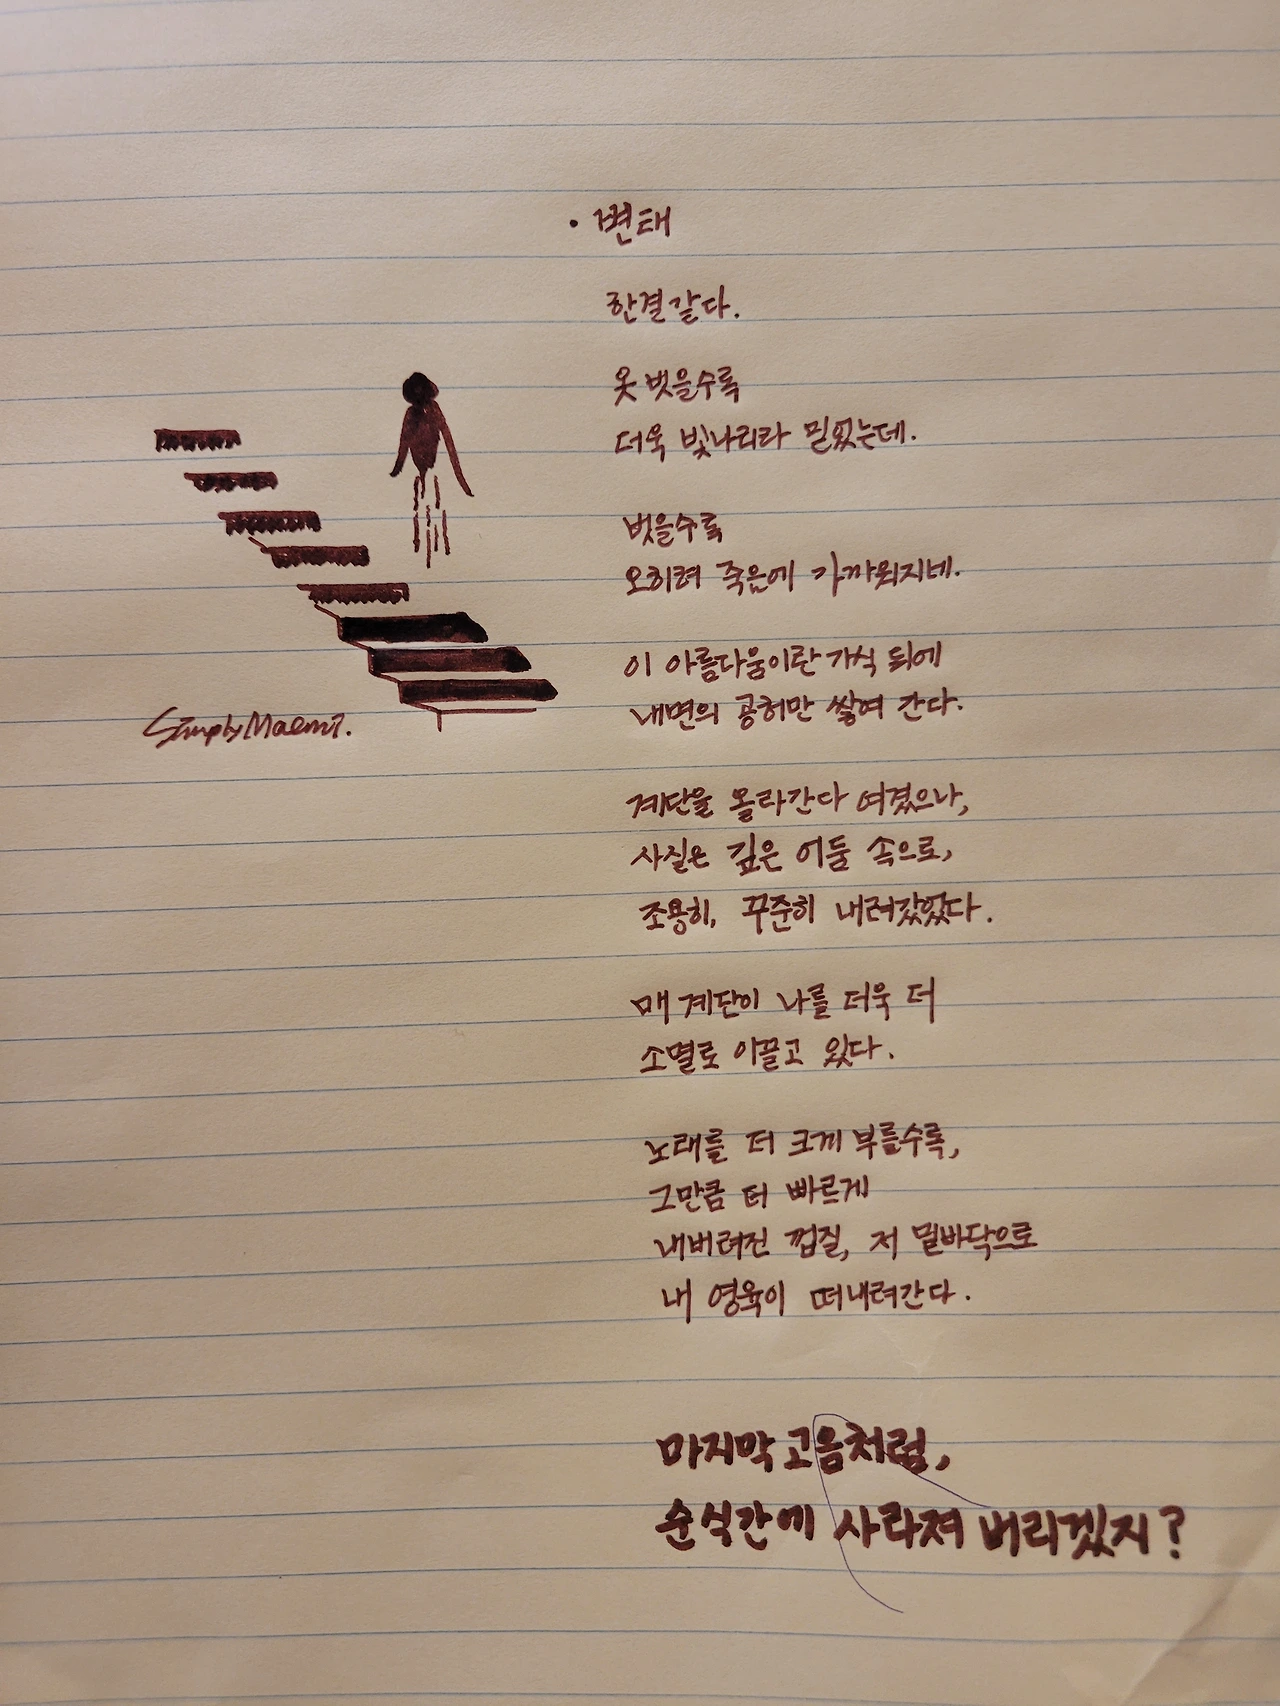 · 변태
한결같다.
옷 벗을수록
더욱 빛나리라 믿었는데.
벗을수록
오히려 죽음에 가까워지네.
이 아름다움이란 가식 뒤에
내면의 공허만 쌓여 간다.
계단을 올라간다 여겼으나,
사실은 깊은 어둠 속으로,
조용히, 꾸준히 내려갔었다.
매 계단이 나를 더욱 더
소멸로 이끌고 있다.
노래를 더 크게 부를수록,
그만큼 더 빠르게
내버려진 껍질, 저 밑바닥으로
내 영육이 떠내려간다.
마지막 고음처럼,
순식간에 사라져 버리겠지?
SimplyMaemi.